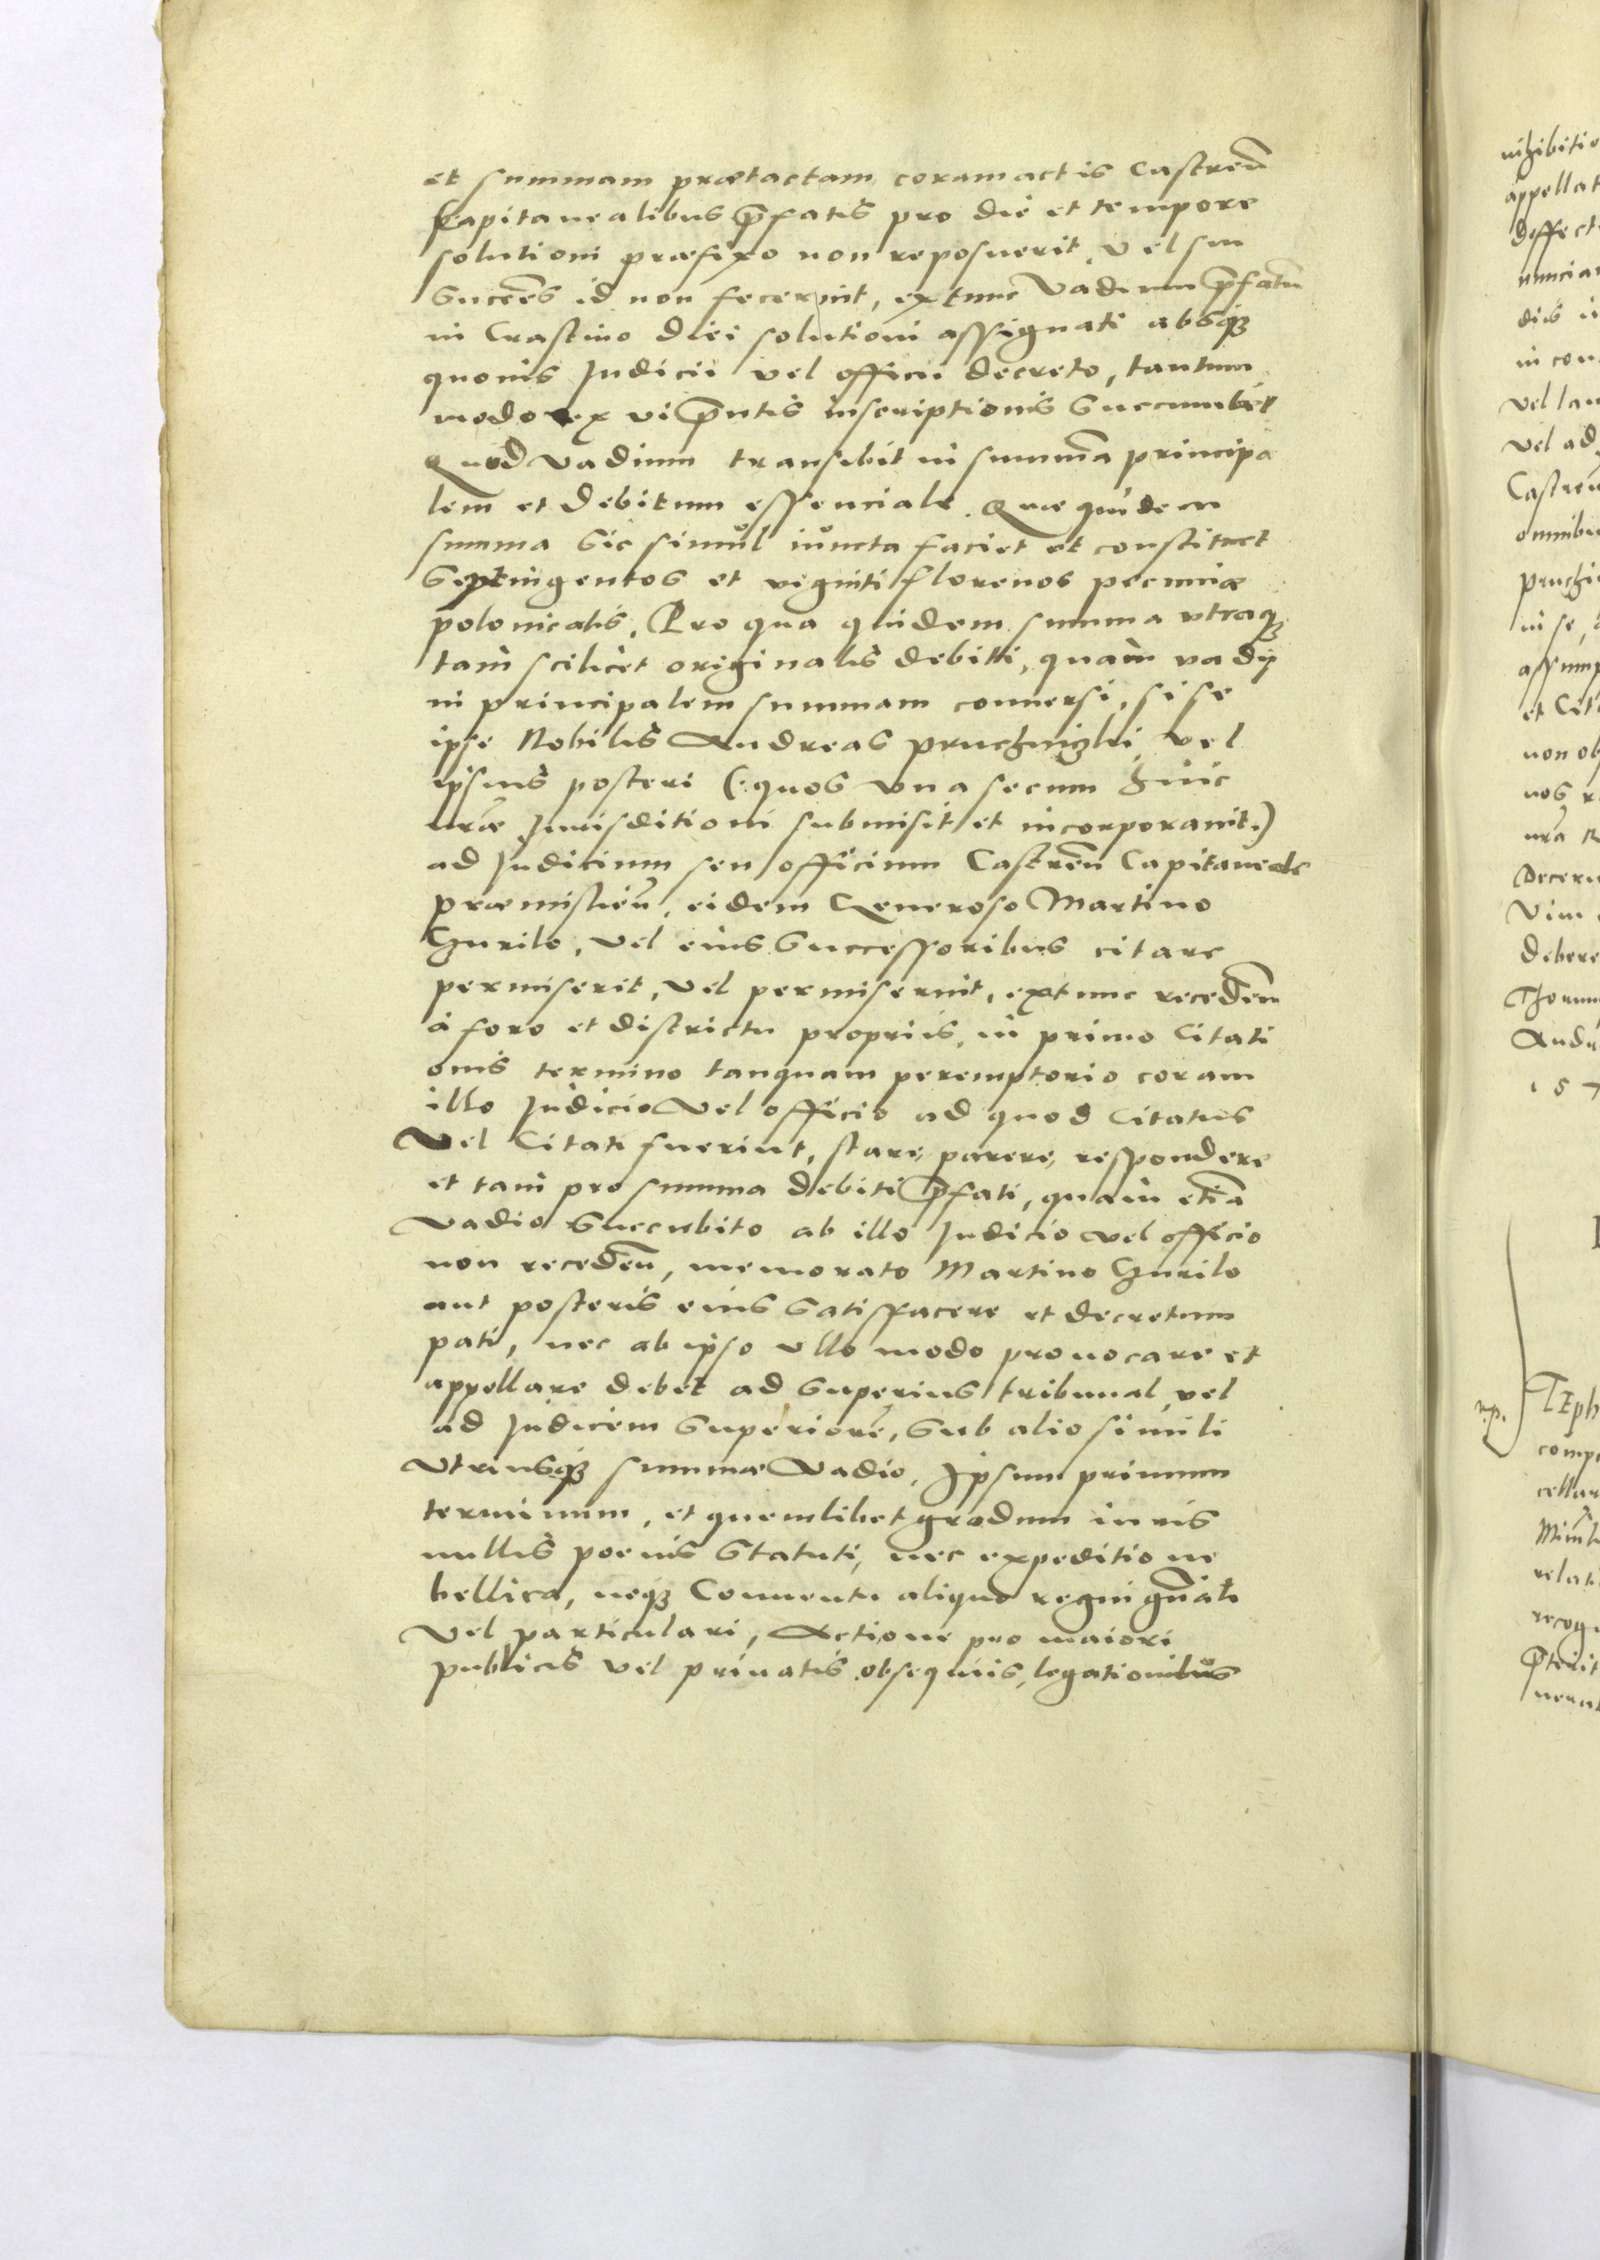 et summam prætactam coram actis Castreñ
Capitanealibus p̃fatis pro die et tempore
solutioni præfixo non reposuerit, vel sui
Succes̃ id non fecerint, extunc Vadium p̃fatũ
in Crastino diei solutioni assignati absq₃
quouis Judicii vel officii decreto, tantum
modo ex vi p̃ntis inscriptionis Succumbet
Quod vadium transibit in summã principa
lem et debitum essenciale. Quæ quidem
summa Sic simŭl iŭncta faciet et constituet
Septingentos et viginti florenos pecuniæ
polonicalis. Pro qua quidem summa vtraq₃
tam scilicet originalis debiti, quàm vadij
in principalem summam conuersi, si se
ipse Nobilis Andreas vel
ipsius posteri (:quos vna secum huic
nr̃æ Jurisditioni submisit et incorporauit:)
ad Judicium seu officium Castreñ Capitaneale
præmissieñ, eidem Generoso Martino
Gurilo, vel eius Successoribus citare
permiserit, vel permiserint, extunc recedeñ
à foro et districtu propriis, in primo Citati
onis termino tanquam peremptorio coram
illo Judicio vel officio ad quod Citatus
Vel Citati fuerint, stare, parere, respondere
et tam pro summa debiti p̃fati, quàm etiã
Vadio Succubito ab illo Judicio vel officio
non recedeñ, memorato Martino Gurilo
aut posteris eius Satisfacere et decretum
pati, nec ab ipso vllo modo prouocare et
appellare debet ad Superius tribunal, vel
ad Judicem Superiorẽ, Sub alio simili
Vtriusq₃ summæ Vadio. Ipsum primum
terminum, et quemlibet gradum iuris
nullis poenis Statuti, nec expeditione
bellica, neq₃ Conuentu aliquo regni gñali
Vel particulari, Actione pro maiori
publicis vel priuatis obsequiis, legationibus